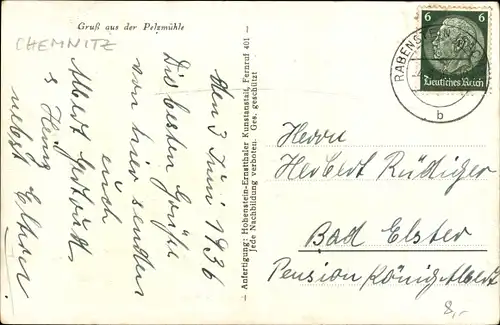 Gruß aus der Pelzmühle
CHEMNITZ
den 3 Juni 1936
Die besten Grüße
von hier senden
euch
Albert Gertrud
& Heinz
nebst Eltern.
Anfertigung: Hohenstein-Ernstthaler Kunstanstalt, Fernruf 401 —
Jede Nachbildung verboten. Ges. geschützt
6 6
Deutsches Reich
RABENSTEIN
b
Herrn
Herbert Rüdiger
Bad Elster
Pension König-Albert
8,-